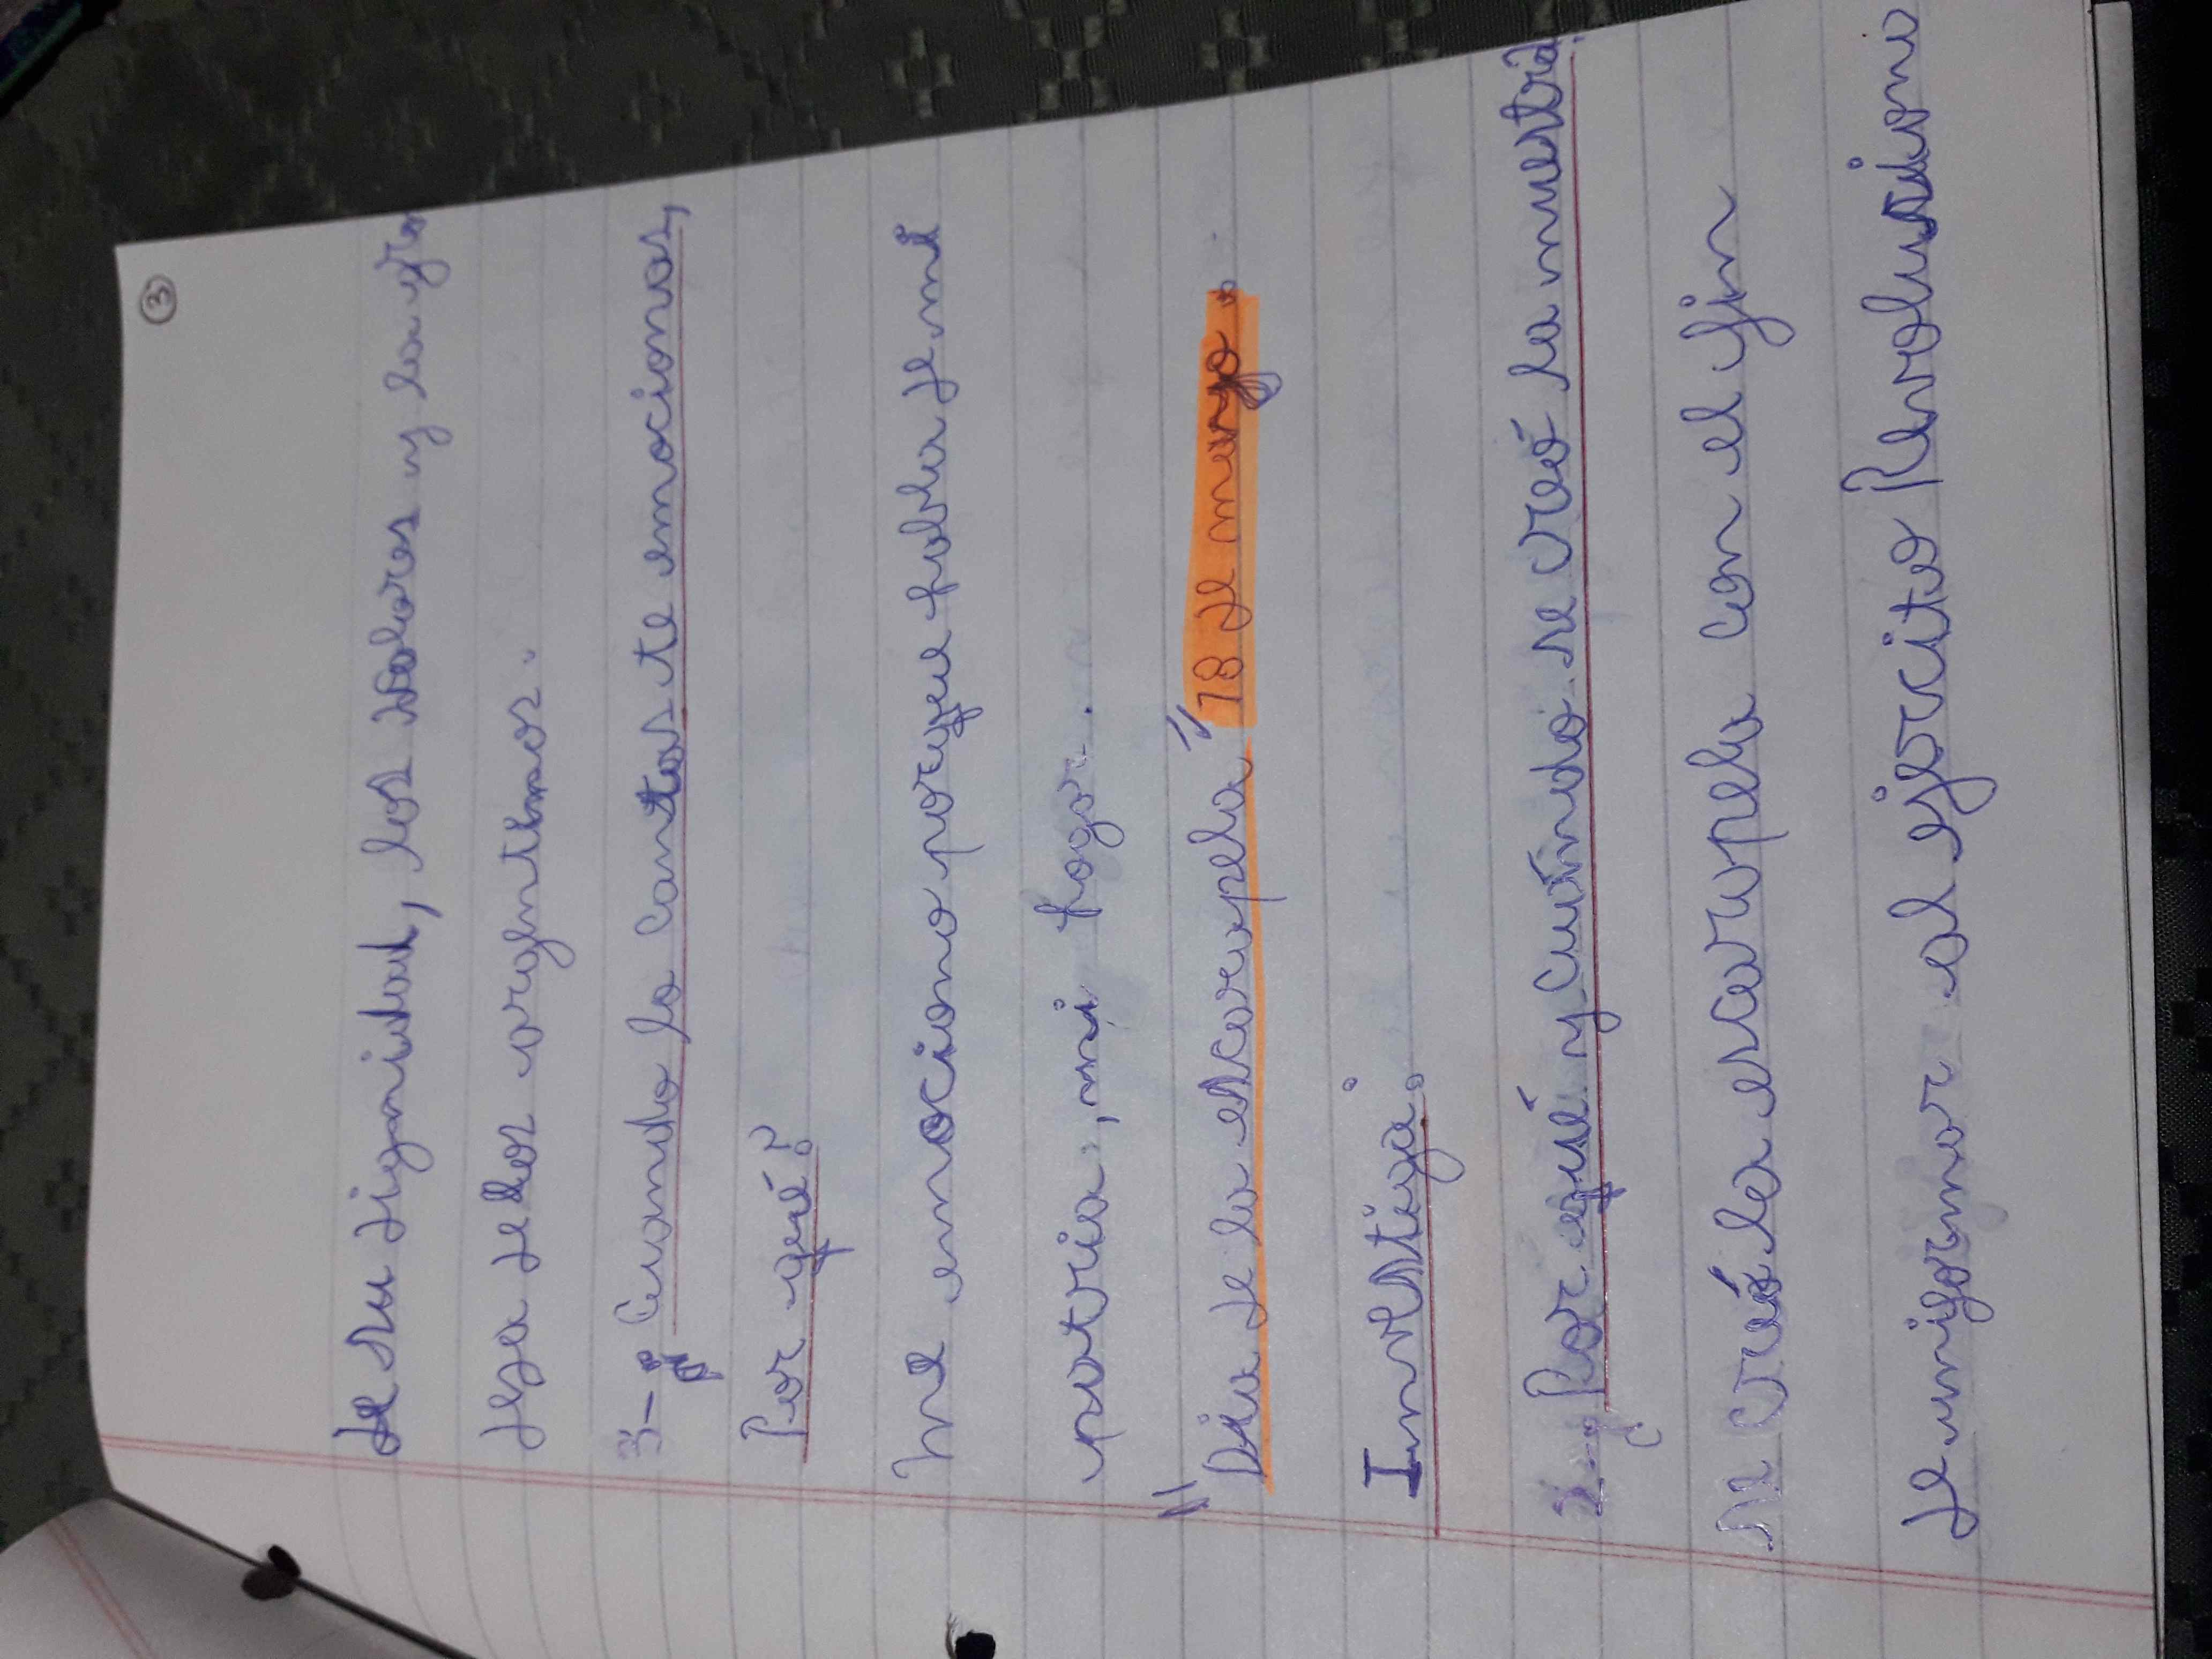 ③
de su dignidad, los valores y la gran
deza de los argentinos.
3-¿Cuando la cantas te emocionas,
Por qué?
Me emociono porque habla de mi
patria, mi hogar.
"Dia de la escarapela" 18 de mayo.
Investiga:
¿Por qué y cuándo se creó la nuestra?
se creó la escarapela con el fin
de uniformar al ejercito Revoluciona